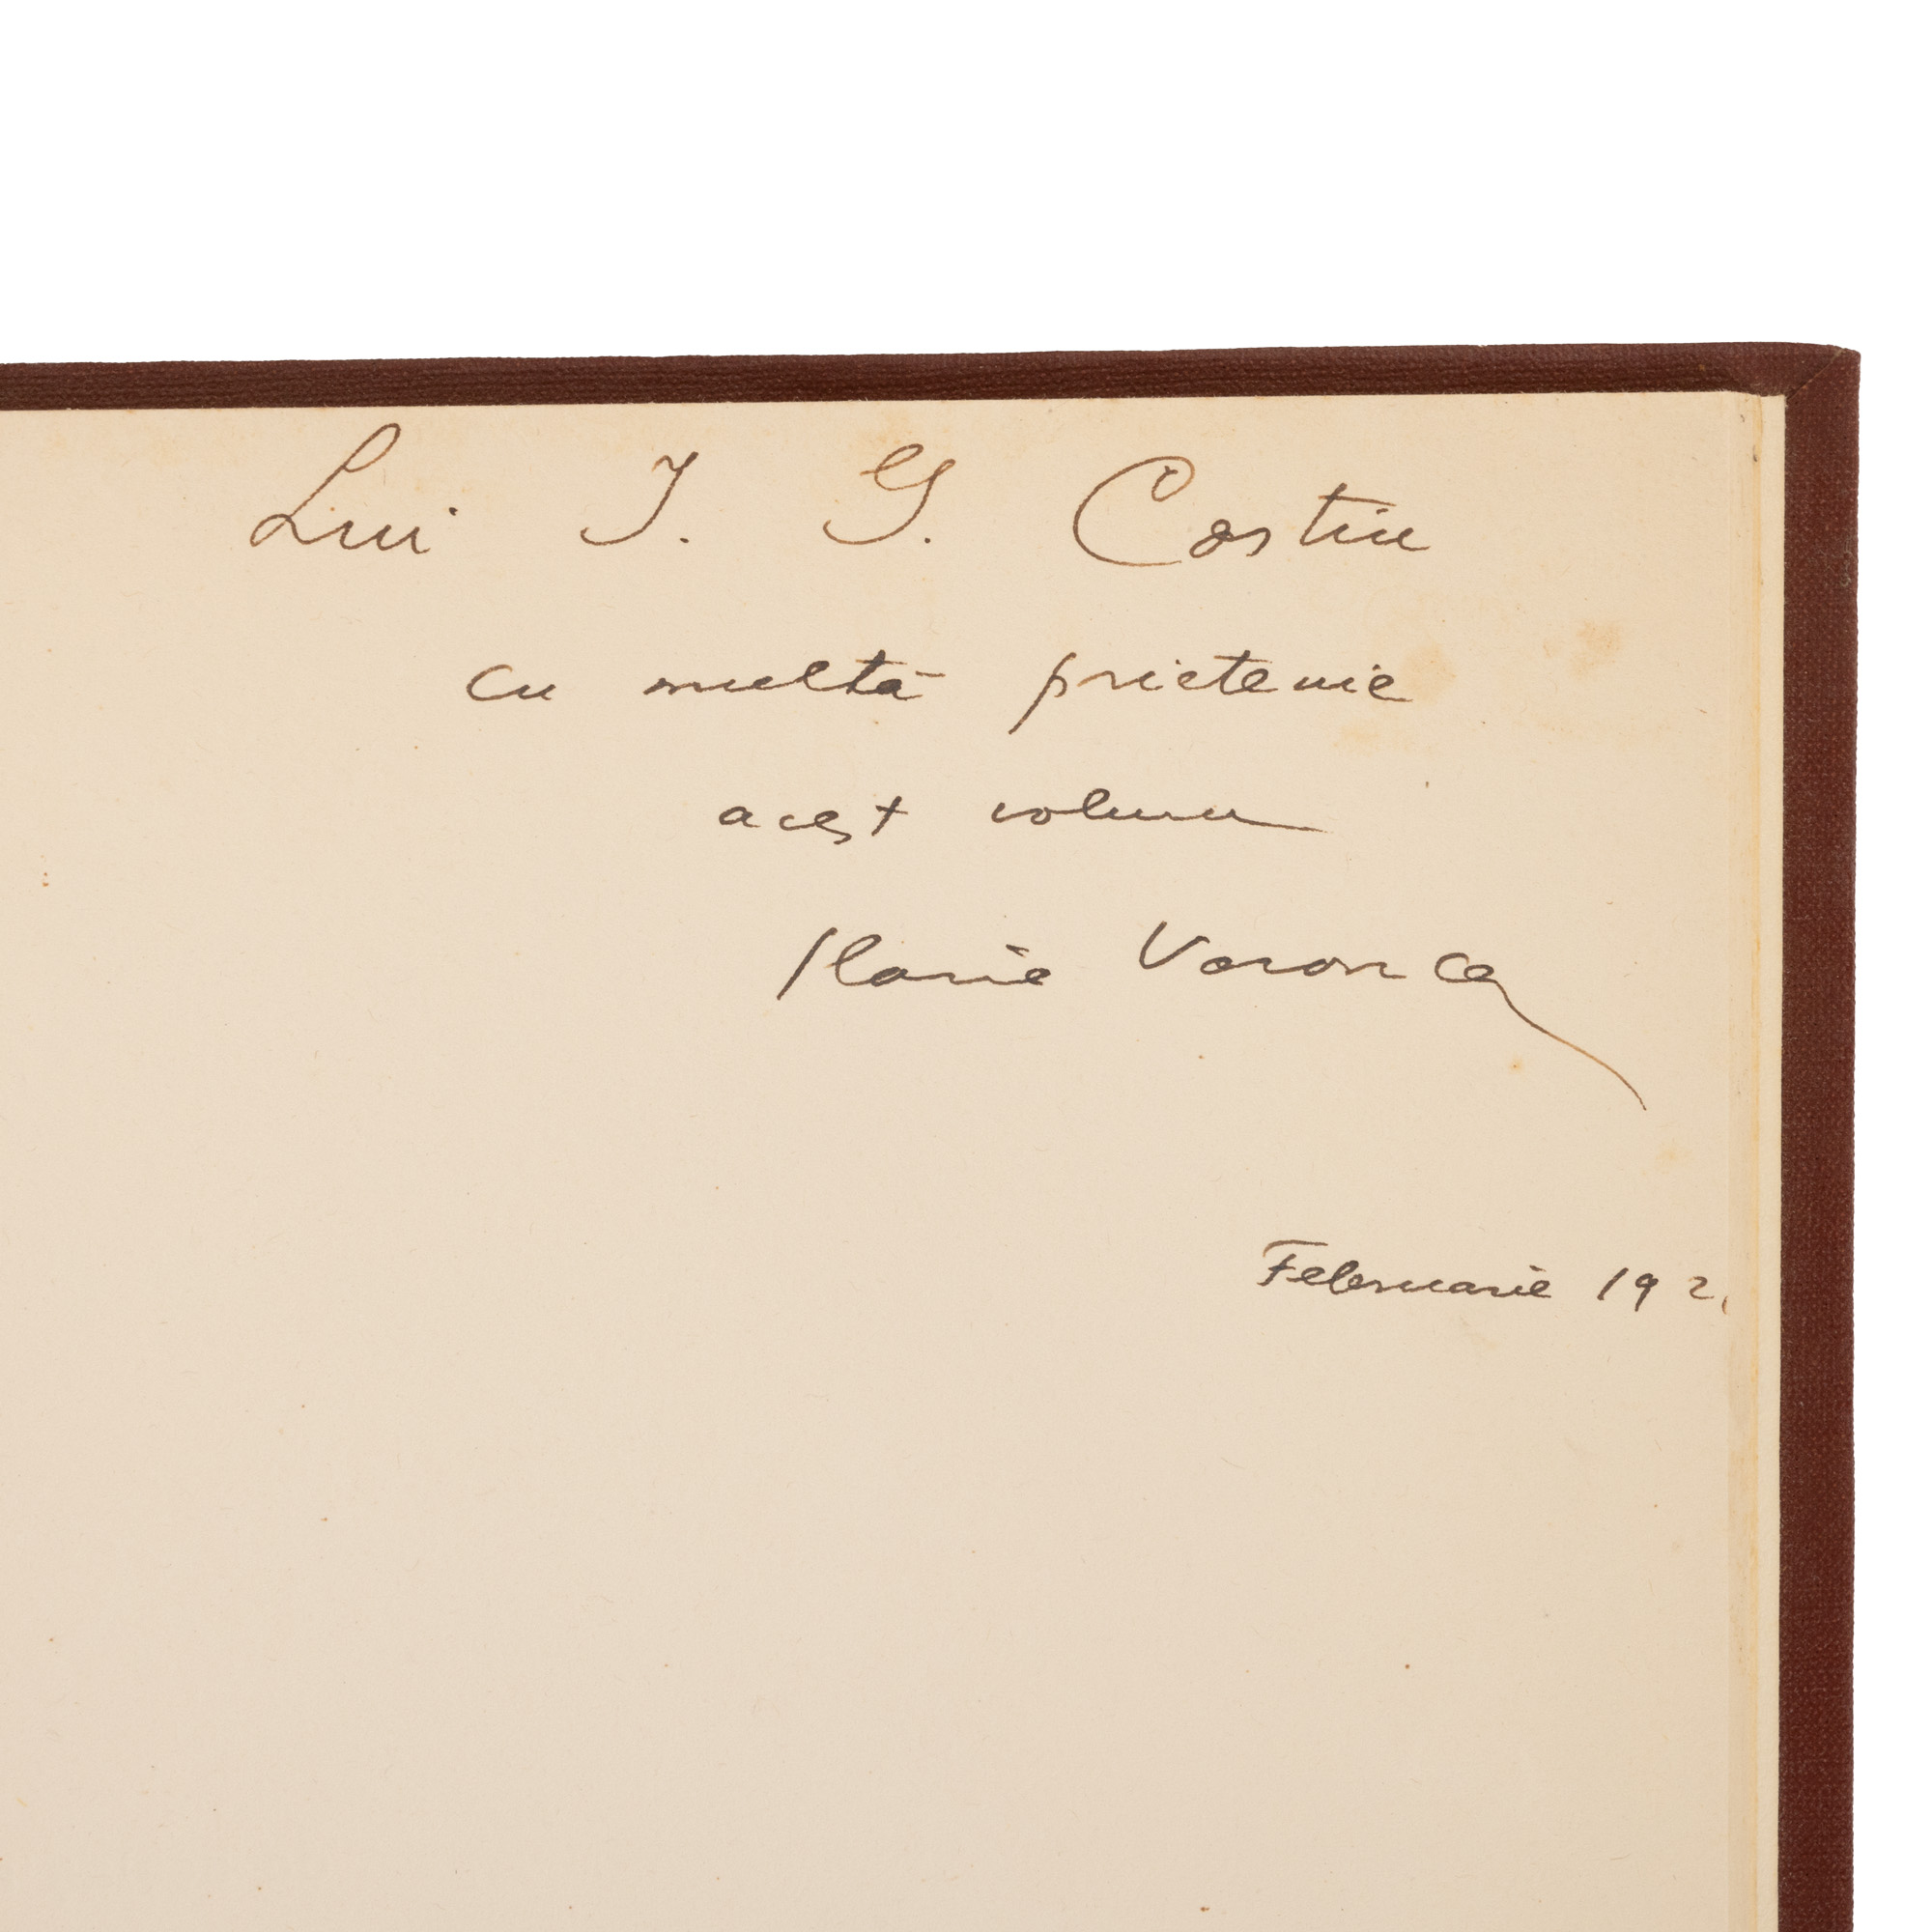 Lui I. G. Costin
cu multă prietenie
acest volum
Ilarie Voronca
Februarie 192